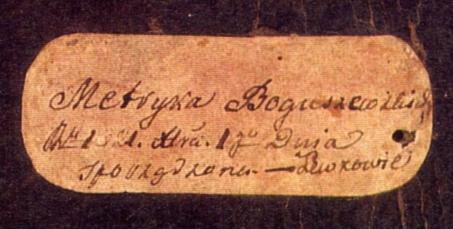 Metryka Boguszewskich
1821. 1go Dnia
sporządzona — Lwowie